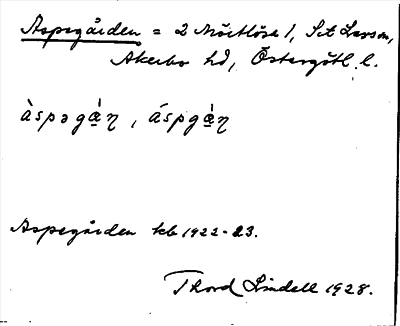 Aspegården = 2 Mörtlösa 1, S:t Lars sn,
Åkerbo hd, Östergötl. l.
àspəgá̱ꞃ, áspgá̱ꞃ
Aspegården kb 1922-23.
Thord Lindell 1928.